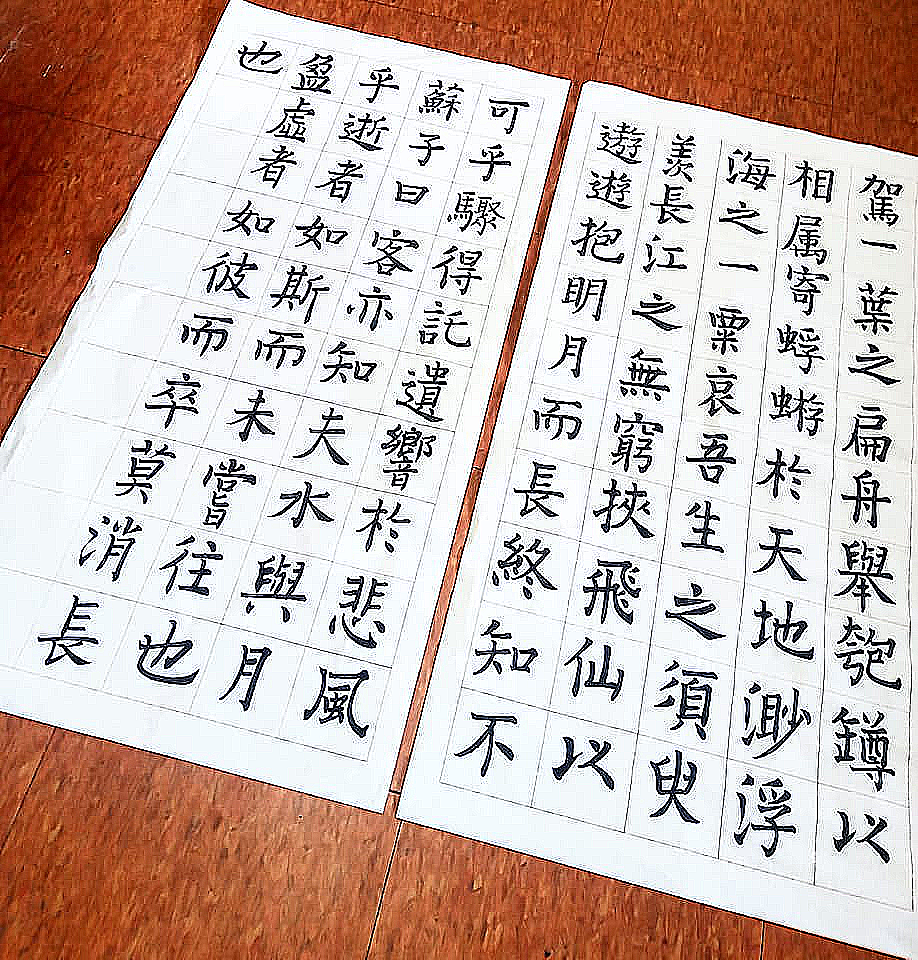 駕一葉之扁舟舉匏鐏以
相属寄蜉蝣於天地渺浮
海之一粟哀吾生之須臾
羨長江之無窮挾飛仙以
遨遊抱明月而長終知不
可乎驟得託遺響於悲風
蘇子曰客亦知夫水與月
乎逝者如斯而未嘗往也
盈虛者如彼而卒莫消長
也